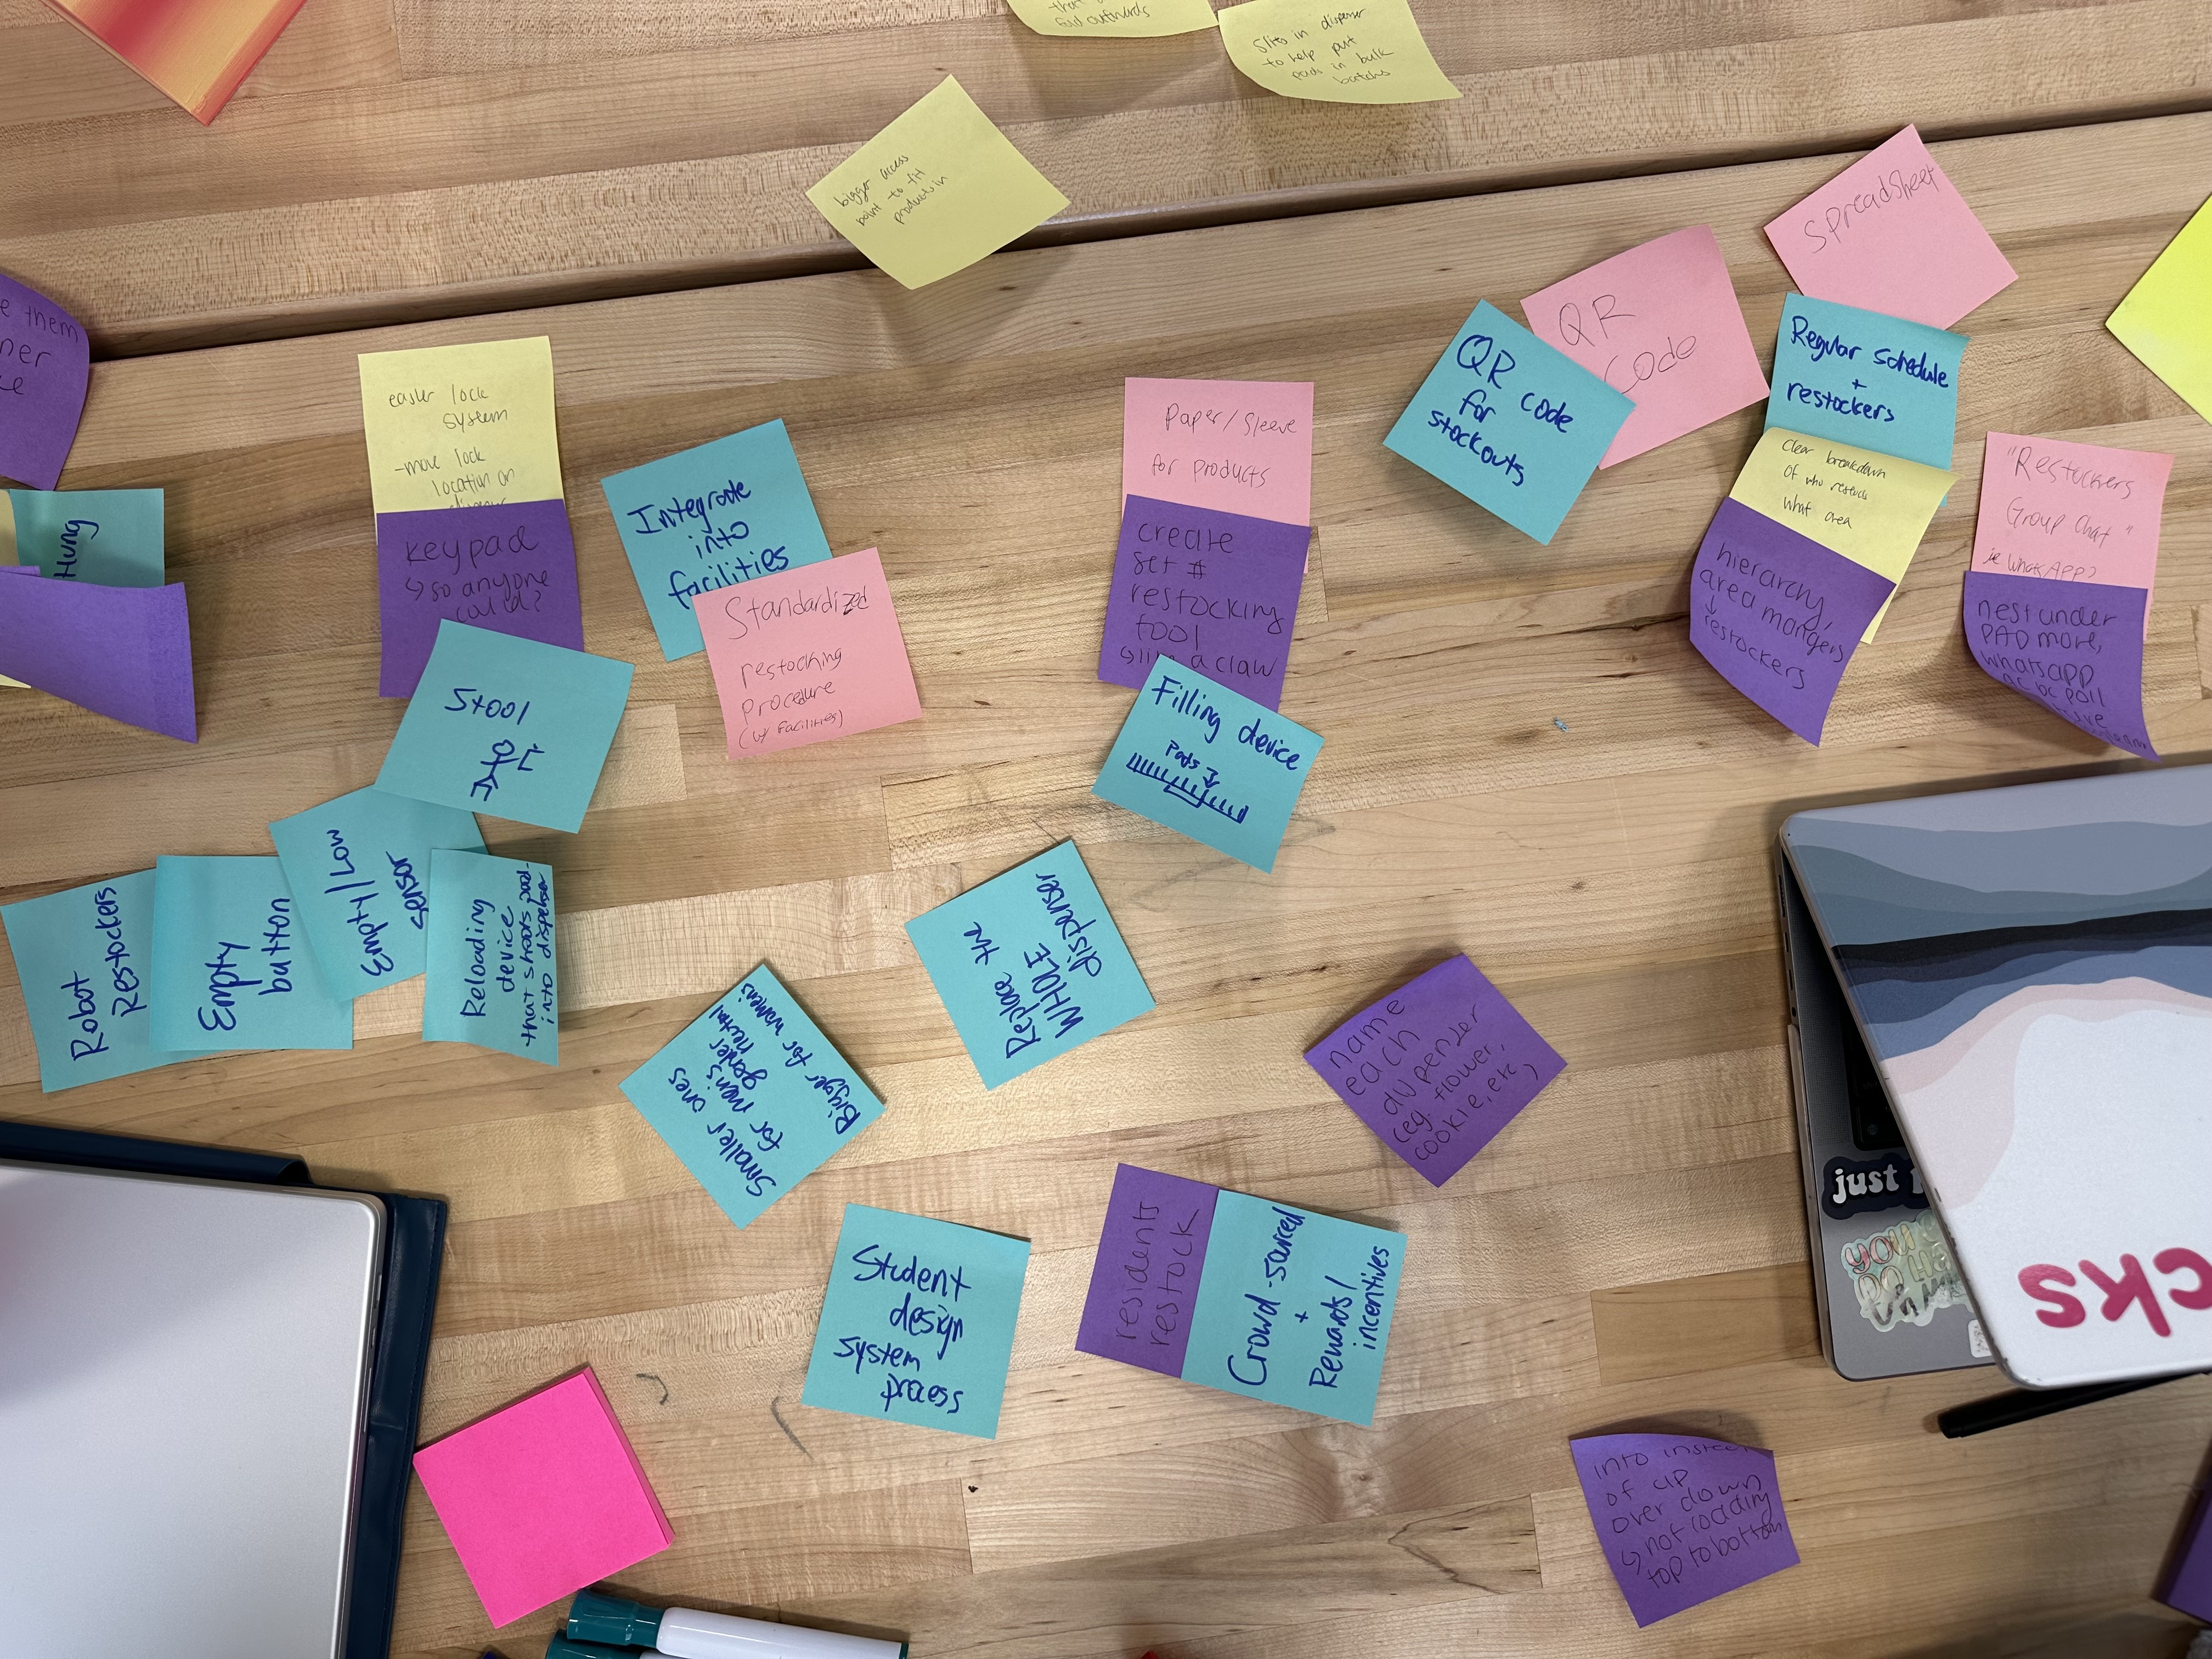 fold outwards
Slits in dispenser
to help put
pads in bulk
batchs
bigger access
point to fit
product in
spreadsheet
QR
Code
QR code
for
stockouts
Regular schedule
+
restockers
clear breakdown
of who restocks
what area
hierarchy,
area mangers
↓
restockers
"Restockers
Group Chat"
ie WhatsApp?
nest under
PAD more,
whatsapp
poll
e them
ner
ce
Hung
easier lock
system
-move lock
location on
keypad
↳ so anyone
could?
Integrate
into
facilities
Standardized
restocking
procedure
(w/ facilities)
Paper/Sleeve
for products
create
set #
restocking
tool
↳ like a claw
Filling device
Pads
Stool
Robot
Restockers
Empty
button
Empty/Low
sensor
Reloading
device
that shoots pad
into dispenser
Replace the
WHOLE
dispenser
Smaller ones
for men's
gender neutral
Bigger for women's
name
each
dispenser
(eg. flower,
cookie, etc)
Student
design
system
process
residents
restock
Crowd-sourced
+
Rewards/
incentives
into instead
of up
over down
↳ not loading
top to bottom
just p
YOU'
cks